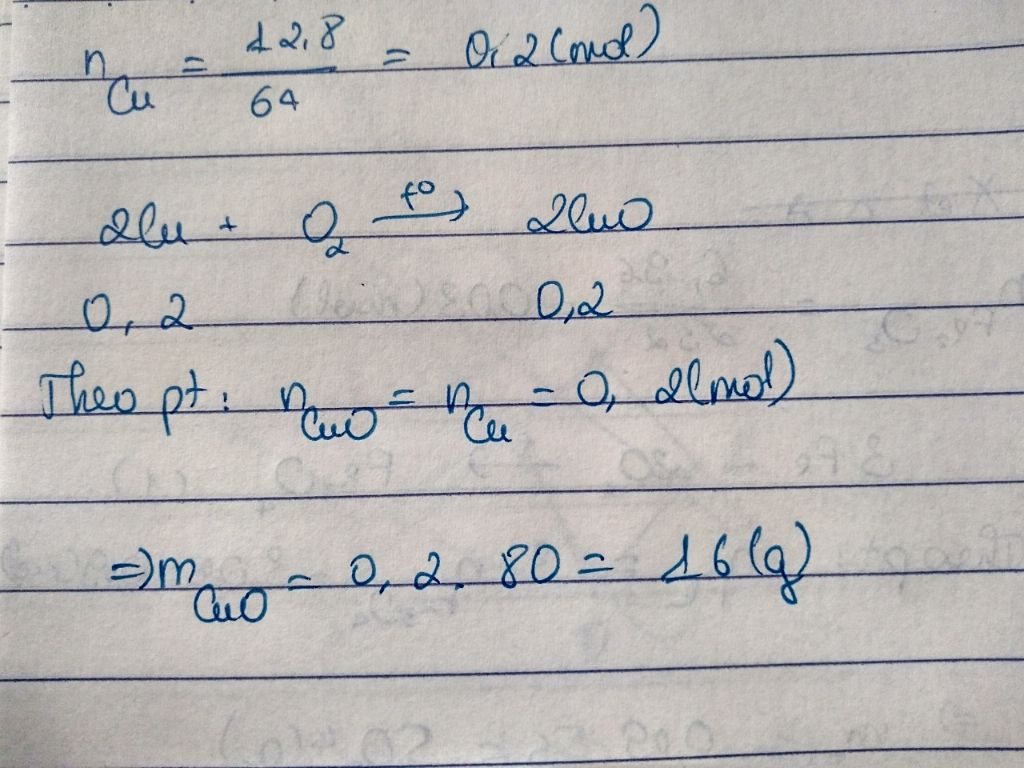 n_Cu = 12,8/64 = 0,2 (mol)
2Cu + O₂ —t°→ 2CuO
0,2 0,2
Theo pt: n_CuO = n_Cu = 0,2 (mol)
⇒ m_CuO = 0,2 . 80 = 16 (g)